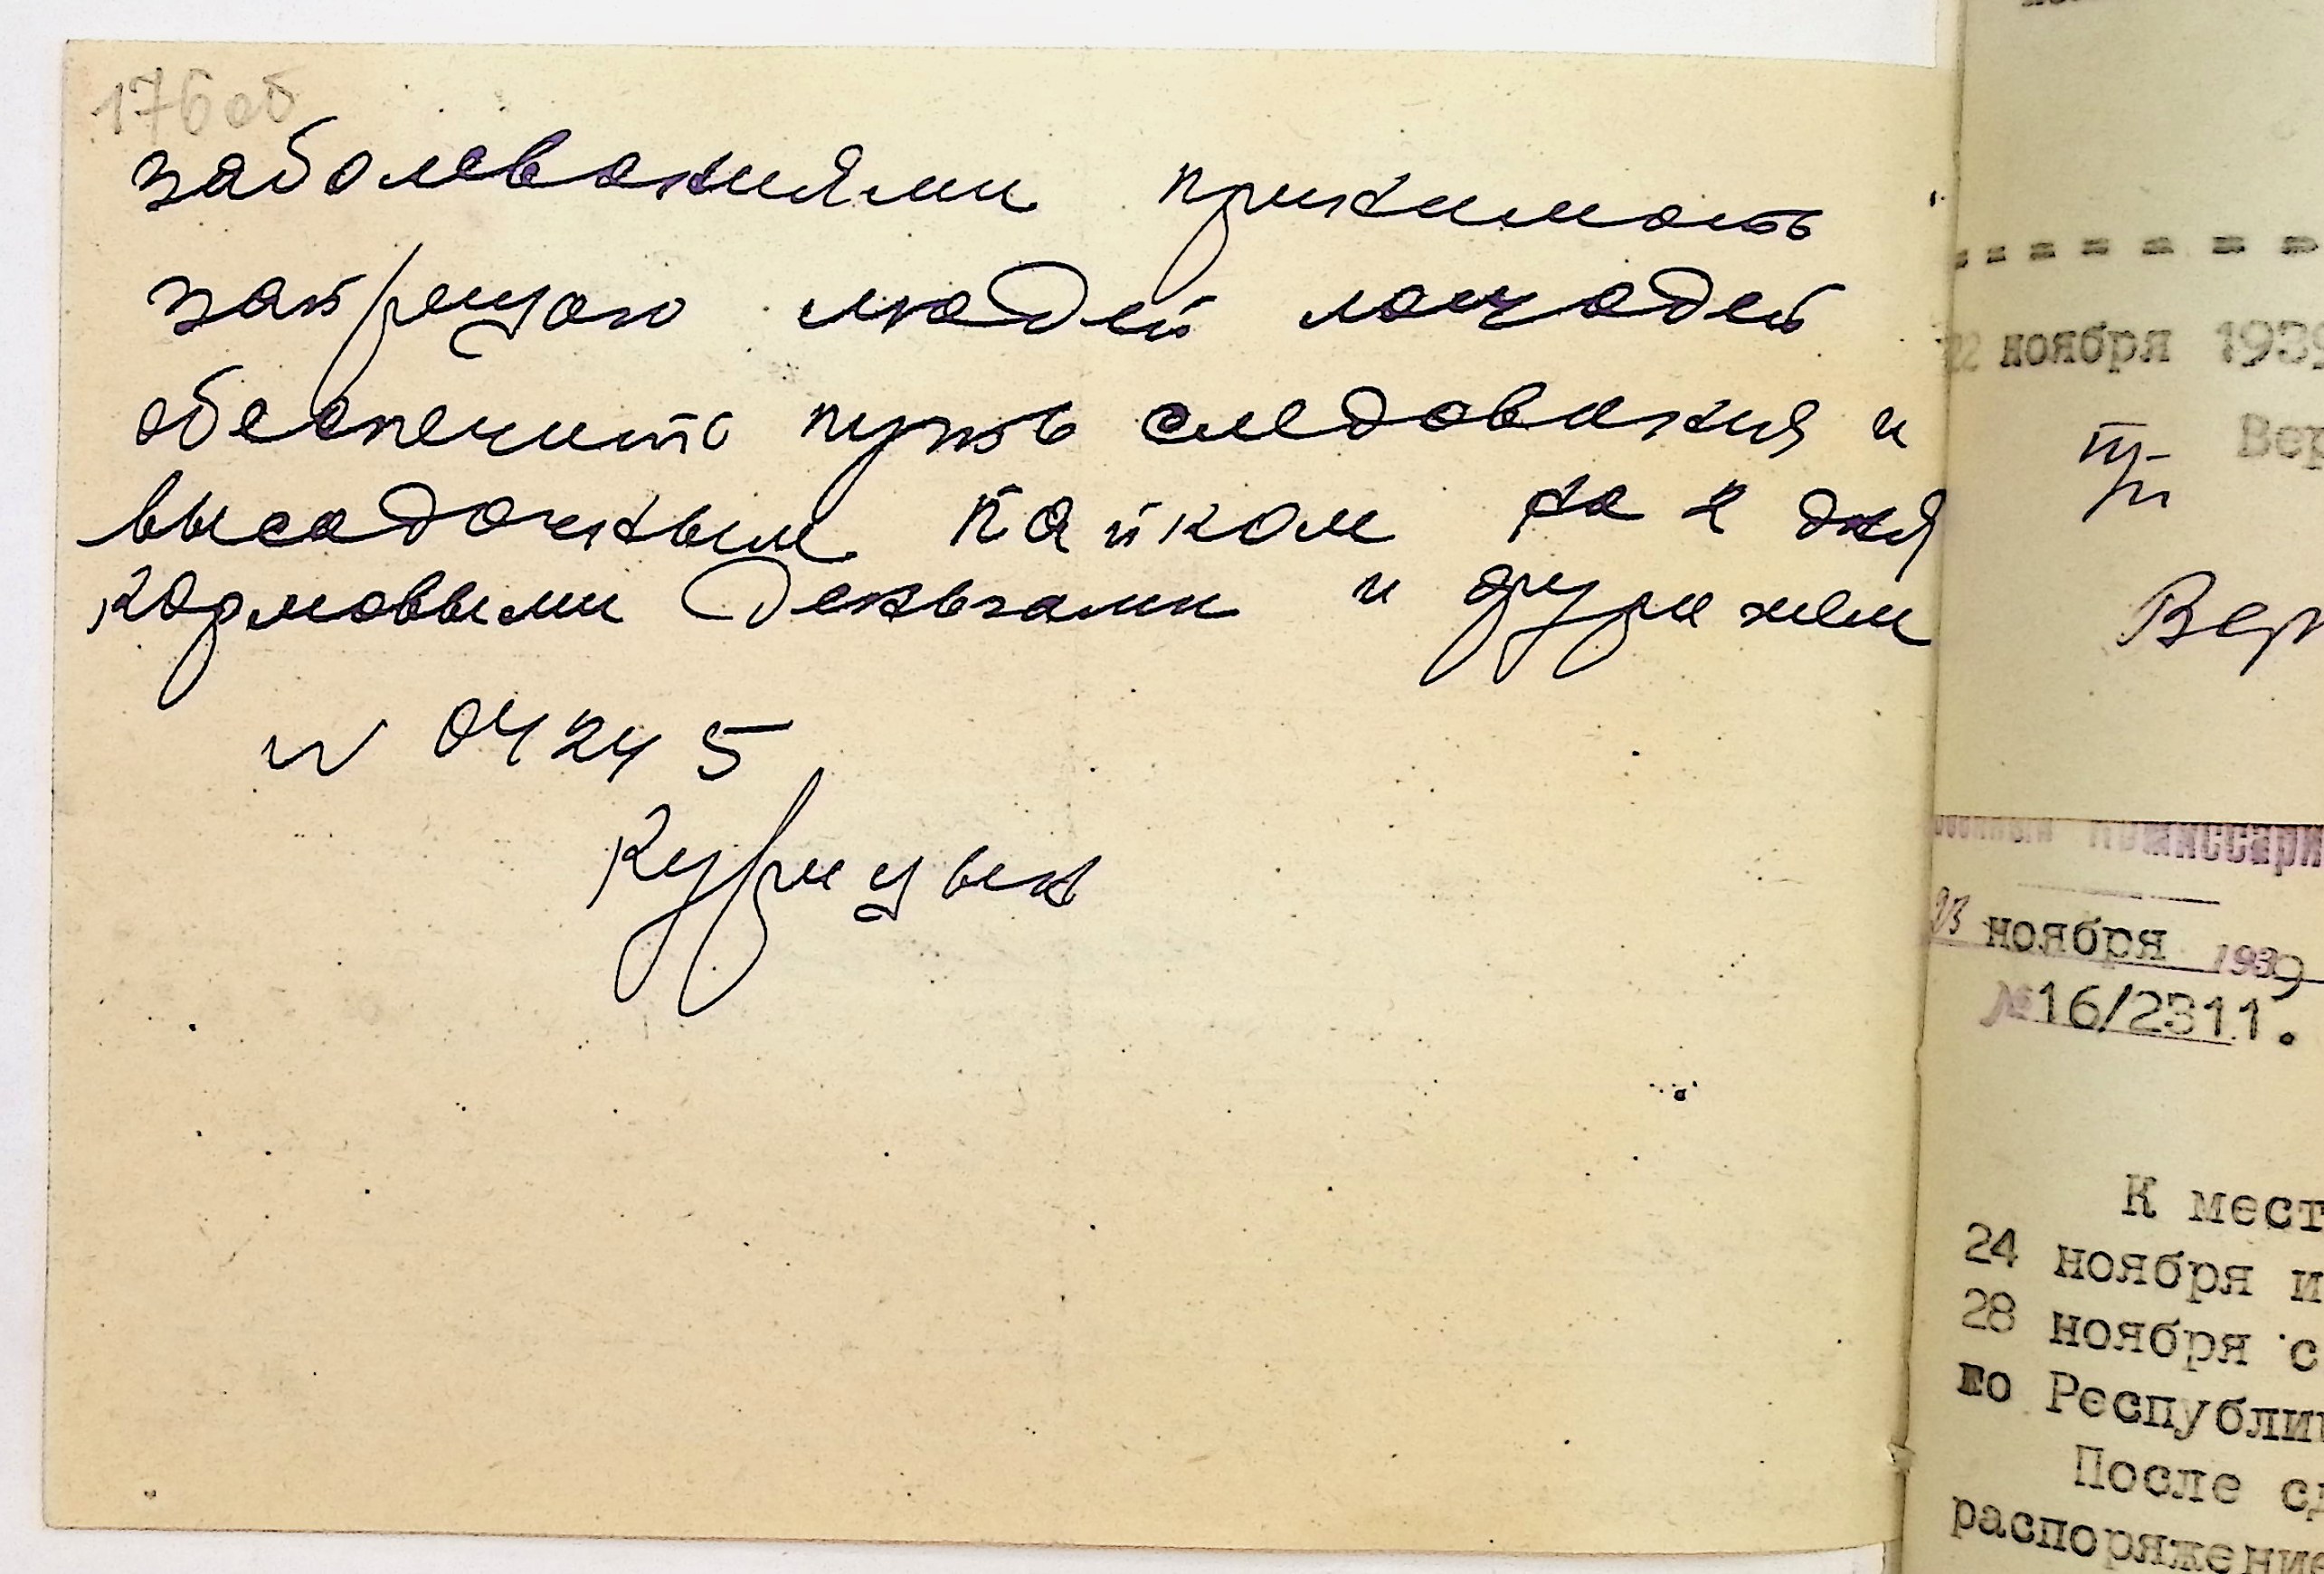 176об
заболеваниями принимать
запрещаю людей лошадей
обеспечить путь следования и
высадочным пайком на 2 дня
кормовыми деньгами и фуражем
N 04245
Курицын
22 ноября 1939
Вер
Вер
Комиссари
23 ноября 1939
№16/2311.
К мест
24 ноября и
28 ноября с
го Республи
После сд
распоряжение